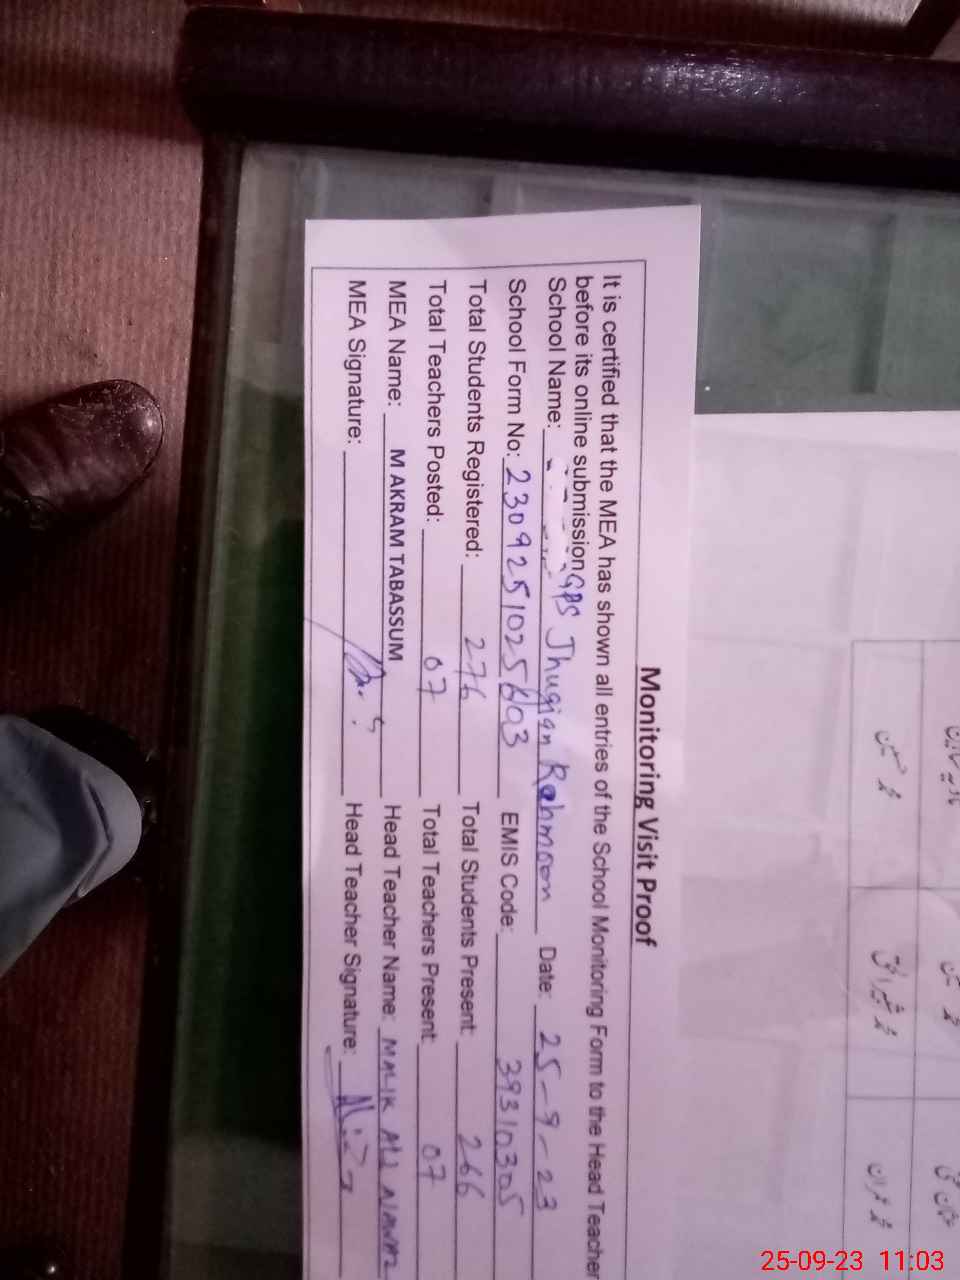 Monitoring Visit Proof
It is certified that the MEA has shown all entries of the School Monitoring Form to the Head Teacher
before its online submission.
School Name: GPS Jhugian Rehmoon Date: 25-9-23
School Form No: EMIS Code: 39310305
Total Students Registered: 276 Total Students Present: 266
Total Teachers Posted: 07 Total Teachers Present: 07
MEA Name: M AKRAM TABASSUM Head Teacher Name: MALIK ALI NAWAZ
MEA Signature: Head Teacher Signature:
محمد حسین
محمد عمران
25-09-23 11:03